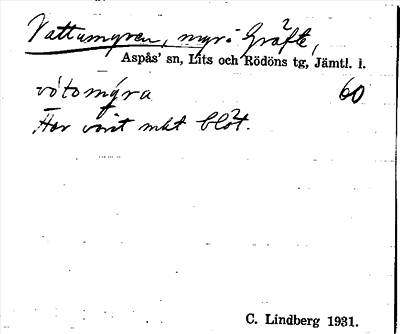 Vattumyren, myr i Gräfte,
Aspås' sn, Lits och Rödöns tg, Jämtl. l.
vótomýra 60
Har varit mkt blöt.
C. Lindberg 1931.